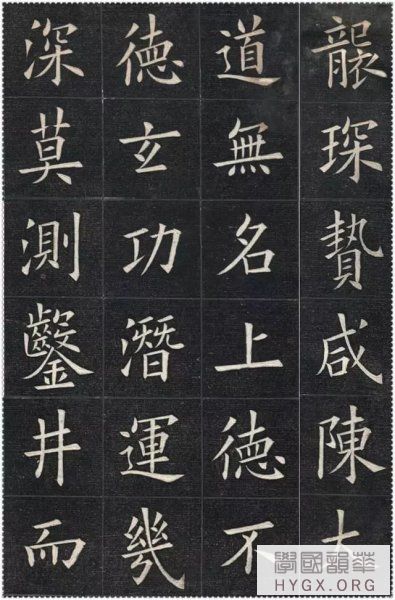 襲琛贄咸陳大
道無名上德不
德玄功潛運幾
深莫測鑿井而
華韻國學
HYGX.ORG